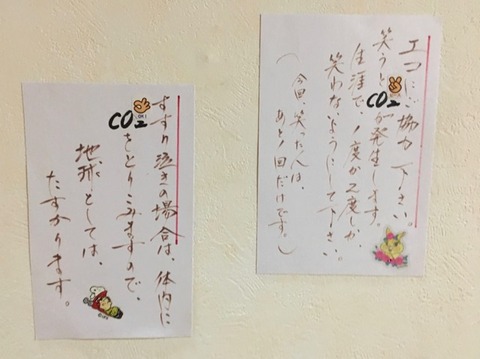 エコにご協力下さい。
笑うとCO2が発生します。
生涯で、1度か2度しか、
笑わないようにして下さい。
(今回、笑た人は、
あと1回だけです。)
すすり泣きの場合は、体内に
CO2をとりこみますので、
地球としては、
たすかります。